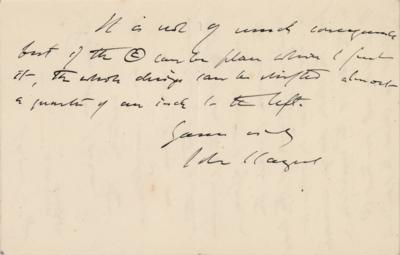 It is not of much consequence
but if the © can be place where I put
it, the whole design can be shifted almost
a quarter of an inch to the left.
Yours truly
John